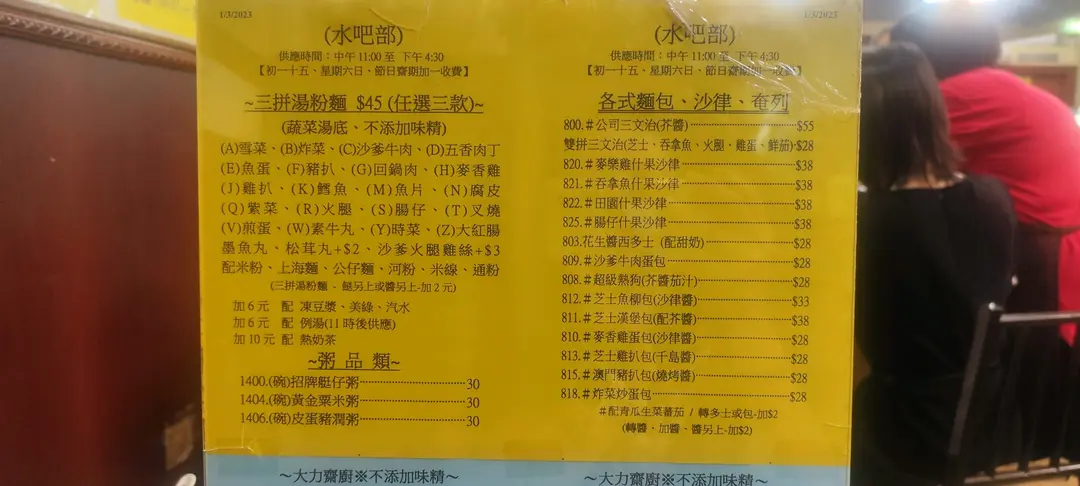 1/3/2023
(水吧部)
供應時間：中午 11:00 至 下午 4:30
【初一十五、星期六日、節日齋期加一收費】
~三拼湯粉麵 $45 (任選三款)~
(蔬菜湯底、不添加味精)
(A)雪菜、(B)炸菜、(C)沙爹牛肉、(D)五香肉丁
(E)魚蛋、(F)豬扒、(G)回鍋肉、(H)麥香雞
(J)雞扒、(K)鱈魚、(M)魚片、(N)腐皮
(Q)紫菜、(R)火腿、(S)腸仔、(T)叉燒
(V)煎蛋、(W)素牛丸、(Y)時菜、(Z)大紅腸
墨魚丸、松茸丸+$2、沙爹火腿雞絲+$3
配米粉、上海麵、公仔麵、河粉、米線、通粉
(三拼湯粉麵 - 餸另上或醬另上-加 2 元)
加 6 元 配 凍豆漿、美綠、汽水
加 6 元 配 例湯(11 時後供應)
加 10 元 配 熱奶茶
~粥 品 類~
1400.(碗)招牌艇仔粥 30
1404.(碗)黃金粟米粥 30
1406.(碗)皮蛋豬潤粥 30
～大力齋廚※不添加味精～
1/3/2023
(水吧部)
供應時間：中午 11:00 至 下午 4:30
【初一十五、星期六日、節日齋期加一收費】
各式麵包、沙律、奄列
800.＃公司三文治(芥醬) $55
雙拼三文治(芝士、吞拿魚、火腿、雞蛋、鮮茄) $28
820.＃麥樂雞什果沙律 $38
821.＃吞拿魚什果沙律 $38
822.＃田園什果沙律 $38
825.＃腸仔什果沙律 $38
803.花生醬西多士 (配甜奶) $28
809.＃沙爹牛肉蛋包 $28
808.＃超級熱狗(芥醬茄汁) $28
812.＃芝士魚柳包(沙律醬) $33
811.＃芝士漢堡包(配芥醬) $38
810.＃麥香雞蛋包(沙律醬) $28
813.＃芝士雞扒包(千島醬) $28
815.＃澳門豬扒包(燒烤醬) $28
818.＃炸菜炒蛋包 $28
＃配青瓜生菜蕃茄 / 轉多士或包-加$2
(轉醬、加醬、醬另上-加$2)
～大力齋廚※不添加味精～